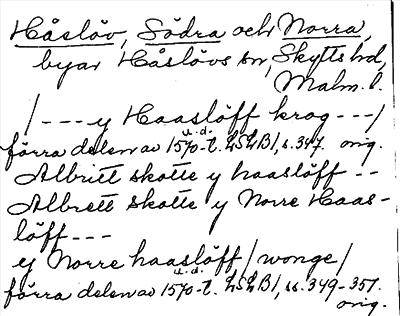 Håslöv, Södra och Norra,
byar Håslövs sn, Skytts hd,
Malm. l.
/ - - - y Haaslöff krog - - - /
u. d.
förra delen av 1570-t. LSLB 1, s. 347. orig.
Albritt skotte y haaslöff - -
Albrett skotte y Norre Haas-
löff - - -
y Norre haaslöff / wonge /
u. d.
förra delen av 1570-t. LSLB 1, ss. 349-351.
orig.